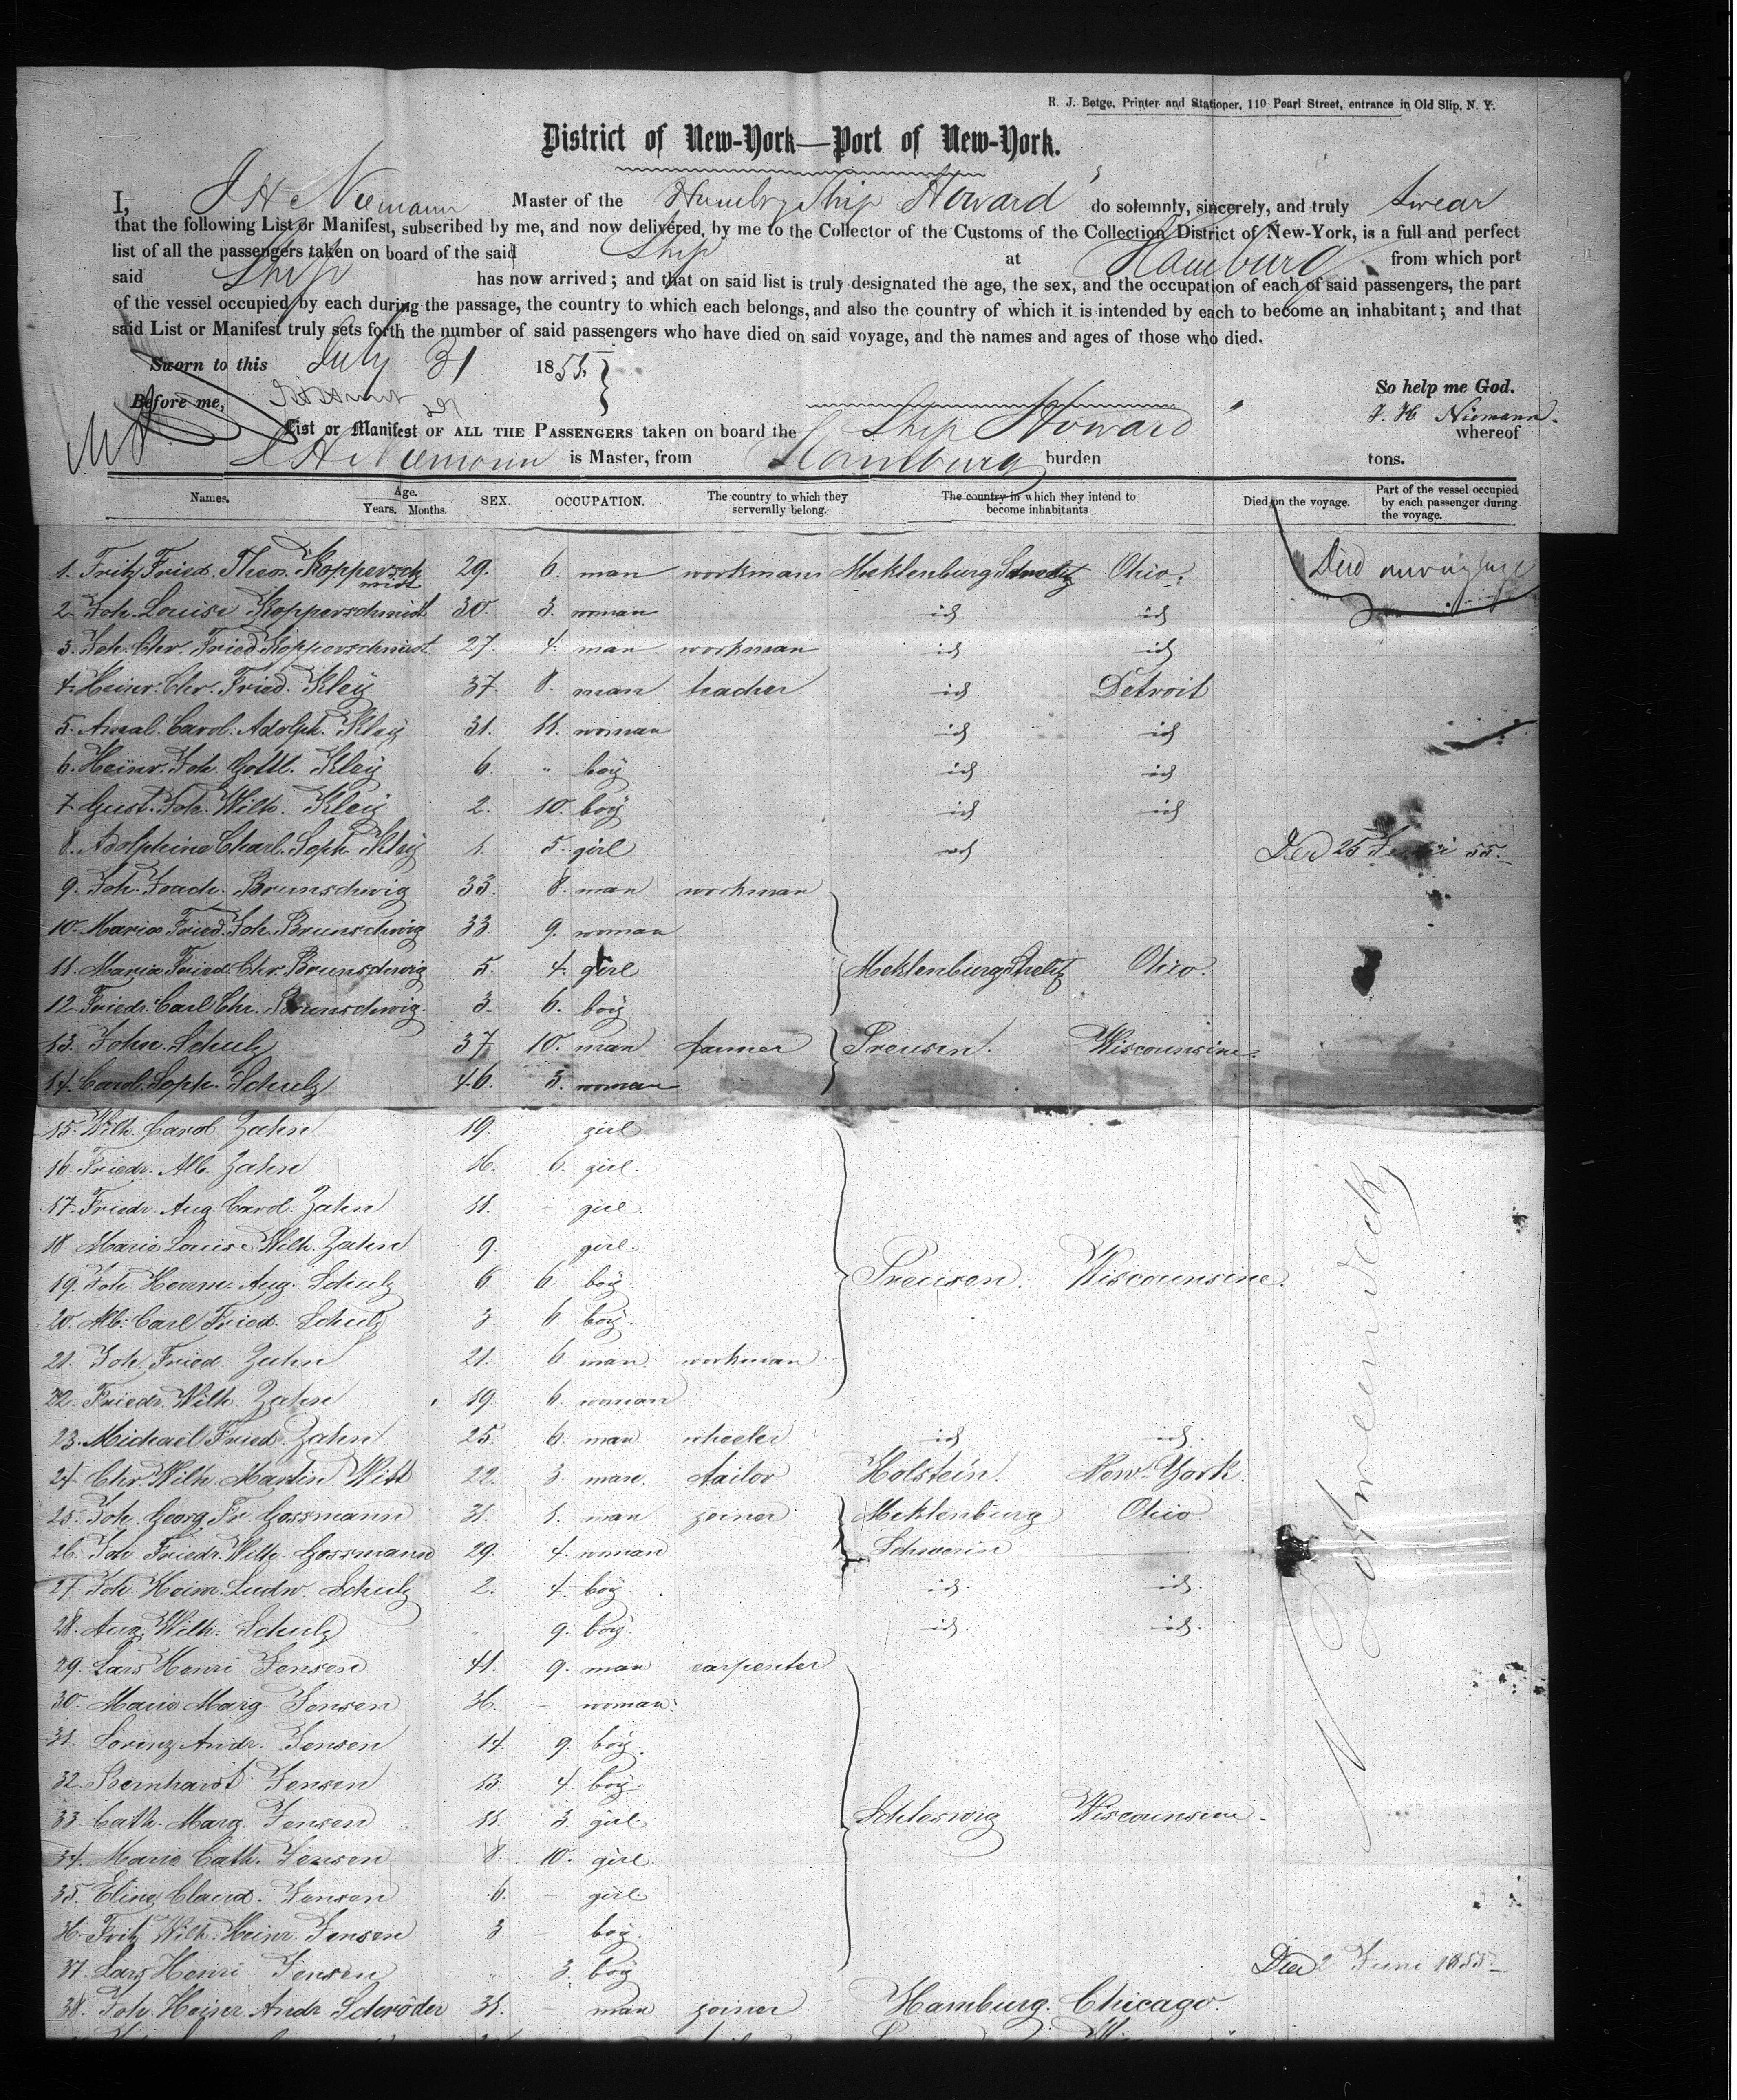 R. J. Betge, Printer and Stationer, 110 Pearl Street, entrance in Old Slip, N. Y.
District of New-York—Port of New-York.
I, J H Niemann Master of the Hambrg Ship Howard do solemnly, sincerely, and truly swear
that the following List or Manifest, subscribed by me, and now delivered by me to the Collector of the Customs of the Collection District of New-York, is a full and perfect
list of all the passengers taken on board of the said Ship at Hamburg from which port
said Ship has now arrived; and that on said list is truly designated the age, the sex, and the occupation of each of said passengers, the part
of the vessel occupied by each during the passage, the country to which each belongs, and also the country of which it is intended by each to become an inhabitant; and that
said List or Manifest truly sets forth the number of said passengers who have died on said voyage, and the names and ages of those who died.
Sworn to this July 31 1855
So help me God.
Before me,
J. H. Niemann.
List or Manifest OF ALL THE PASSENGERS taken on board the Ship Howard whereof
J H Niemann is Master, from Hamburg burden tons.
Names. Age. Years. Months. SEX. OCCUPATION. The country to which they serverally belong. The country in which they intend to become inhabitants Died on the voyage. Part of the vessel occupied by each passenger during the voyage.
1. Fritz Fried. Theo. Kopperschmidt 29. 6. man workmann Meklenburg Strelitz Ohio. Died
2. Joh. Louise Kopperschmidt 30. 3. woman id id
3. Joh. Chr. Fried. Kopperschmidt 27. 4. man workman id id
4. Heinr. Chr. Fried. Kleÿ 37. 8. man teacher id Detroit
5. Amal. Carol. Adolph. Kleÿ 31. 11. woman id id
6. Heinr. Joh. Gottl. Kleÿ 6. " boÿ id id
7. Gust. Joh. Wilh. Kleÿ 2. 10. boÿ id id
8. Adolphine Charl. Soph. Kleÿ 1. 5. girl id Died 25 55.
9. Joh. Joach. Brunschwig 33. 8. man workman
10. Maria Fried. Joh. Brunschwig 33. 9. woman
11. Maria Fried. Chr. Brunschwig 5. 4. girl Meklenburg Strelitz Ohio.
12. Friedr. Carl Chr. Brunschwig. 3. 6. boÿ
13. John. Schulz 37 10. man farmer Preusen. Wiscounsine.
14. Carol. Soph. Schulz 46. 3. woman
15. Wilh. Carol. Zahn 19. girl
16. Friedr. Alb. Zahn 16. 6. girl.
17. Friedr. Aug. Carol. Zahn 11. – girl
18. Marie Louise Wilh. Zahn 9. girl.
19. Joh. Herm. Aug. Schulz 6. 6. boÿ. Preusen. Wiscounsine.
20. Alb. Carl Fried. Schulz 3. 6. boÿ.
21. Joh. Fried. Zahn 21. 6. man workman
22. Friedr. Wilh. Zahn 19. 6. woman
23. Michael Fried. Zahn 25. 6. man wheeler id id.
24. Chr. Wilh. Martin Witt 22. 3. man. tailor Holstein. New-York.
25. Joh. Georg Fr. Gossmann 31. 1. man joiner Meklenburg Ohio
26. Joh Friedr. Wilh. Gossmann 29. 4. woman Schwerin
27. Joh. Heinr. Ludw. Schulz 2. 4. boÿ id. id.
28. Aug. Wilh. Schulz " 9. boÿ. id. id.
29. Lars Henri Jensen 41. 9. man carpenter
30. Marie Marg. Jensen 36. – woman.
31. Lorenz Andr. Jensen 14. 9. boÿ.
32. Bernhardt Jensen 13. 4. boÿ.
33. Cath. Marg. Jensen 11. 3. girl. Schleswig Wiscounsine.
34. Marie Cath. Jensen 8. 10. girl.
35. Eline Claud. Jensen 6. – girl.
36. Fritz Wilh. Heinr. Jensen 3 – boÿ.
37. Lars Henri Jensen " 3. boÿ Died 2 Juni 1855
38. Joh. Heinr. Andr. Schröder 31. – man joiner Hamburg. Chicago.